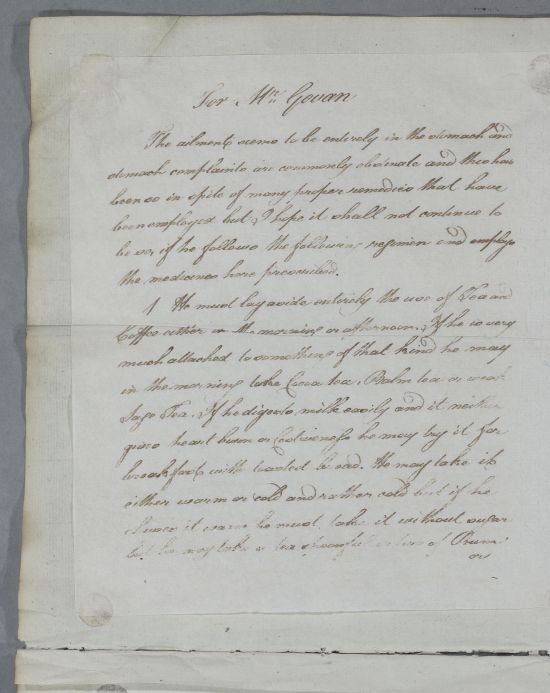 For Mr. Govan
The ailment seems to be entirely in the stomach and
stomach complaints are commonly obstinate and this has
been so in spite of many proper remedies that have
been employed but I hope it shall not continue to
be so, if he follows the following regimen and employs
the medicines here prescribed.
1 He must lay aside entirely the use of Tea and
Coffee either in the morning or afternoon. If he is very
much attached to something of that kind he may
in the morning take Cocoa tea, Balm tea or weak
Sage Tea. If he digests milk easily and it neither
gives heart burn or Costiveness he may try it for
breakfast with toasted bread. He may take it
either warm or cold and rather cold but if he
chuses it warm he must take it without sugar
but he may take a tea spoonfull or two of Rum
or